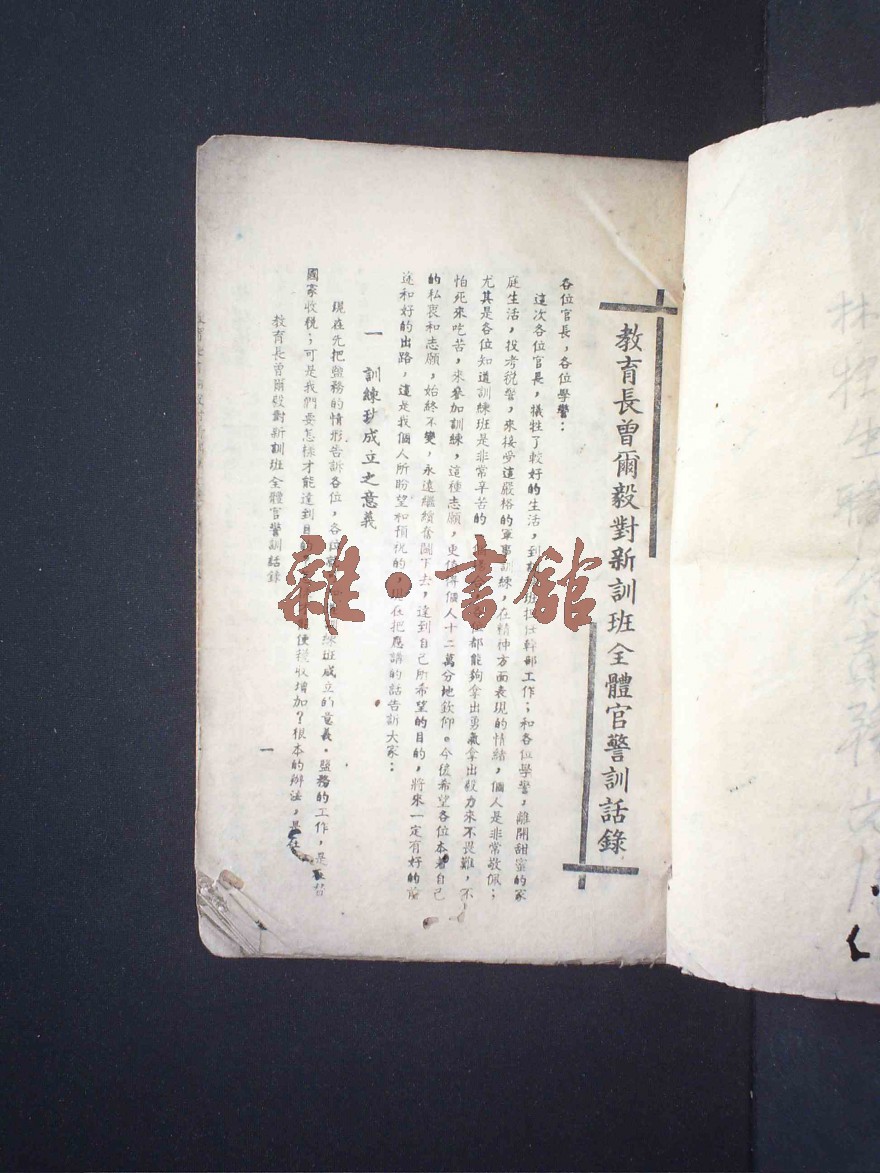 教育長曾爾毅對新訓班全體官警訓話錄
各位官長，各位學警：
這次各位官長，犧牲了較好的生活，到 班担任幹部工作；和各位學警，離開甜蜜的家
庭生活，投考稅警，來接受這嚴格的軍事訓練，在精神方面表現的情緒，個人是非常敬佩；
尤其是各位知道訓練班是非常辛苦的 都能夠拿出勇氣拿出毅力來不畏難，不
怕死來吃苦，來參加訓練，這種志願，更值得個人十二萬分地欽仰。今後希望各位本着自己
的私衷和志願，始終不變，永遠繼續奮鬭下去，達到自己所希望的目的，將來一定有好的前
途和好的出路，這是我個人所盼望和預祝的， 在把應講的話告訴大家：
一 訓練班成立之意義
現在先把鹽務的情形告訴各位，各位 練班成立的意義。鹽務的工作，是 
國家收稅；可是我們要怎樣才能達到目的 使稅收增加？根本的辦法，是在
教育長曾爾毅對新訓班全體官警訓話錄
一
雜·書館